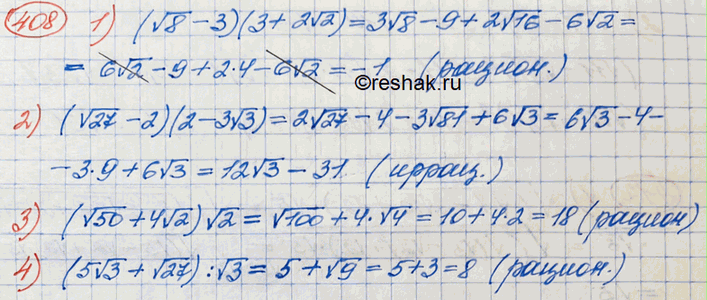 408 1) (√8 - 3)(3 + 2√2) = 3√8 - 9 + 2√16 - 6√2 =
= 6√2 - 9 + 2·4 - 6√2 = -1 (рацион.)
©reshak.ru
2) (√27 - 2)(2 - 3√3) = 2√27 - 4 - 3√81 + 6√3 = 6√3 - 4 -
- 3·9 + 6√3 = 12√3 - 31 (иррац.)
3) (√50 + 4√2)√2 = √100 + 4·√4 = 10 + 4·2 = 18 (рацион)
4) (5√3 + √27) : √3 = 5 + √9 = 5 + 3 = 8 (рацион.)